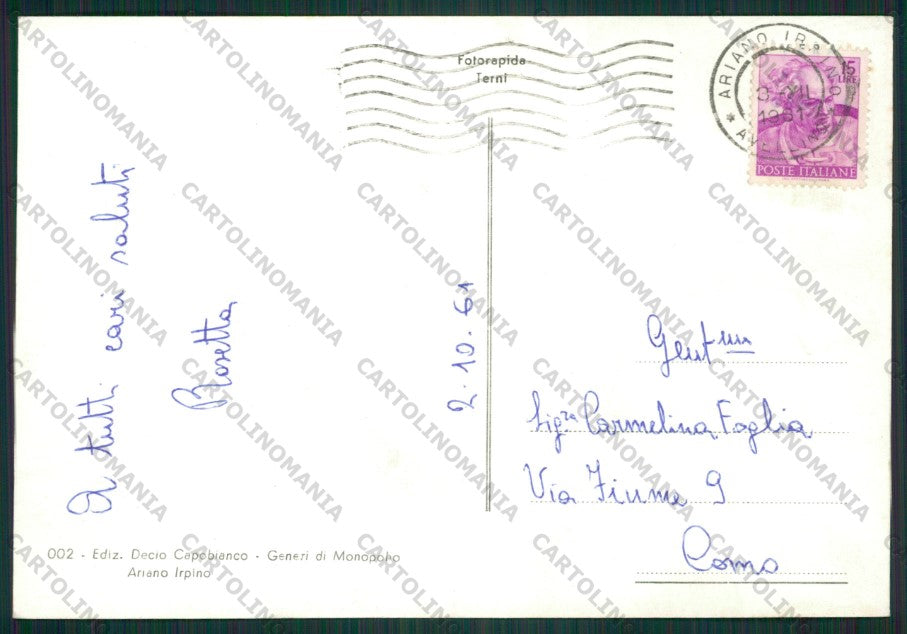 Fotorapida
Terni
ARIANO IRPINO
1961
15
LIRE
POSTE ITALIANE
A tutti cari saluti
Rosetta
2.10.61
Gent.ma
Sig.ra Carmelina Foglia
Via Fiume 9
Como
002 - Ediz. Decio Capobianco - Generi di Monopolio
Ariano Irpino
CARTOLINOMANIA